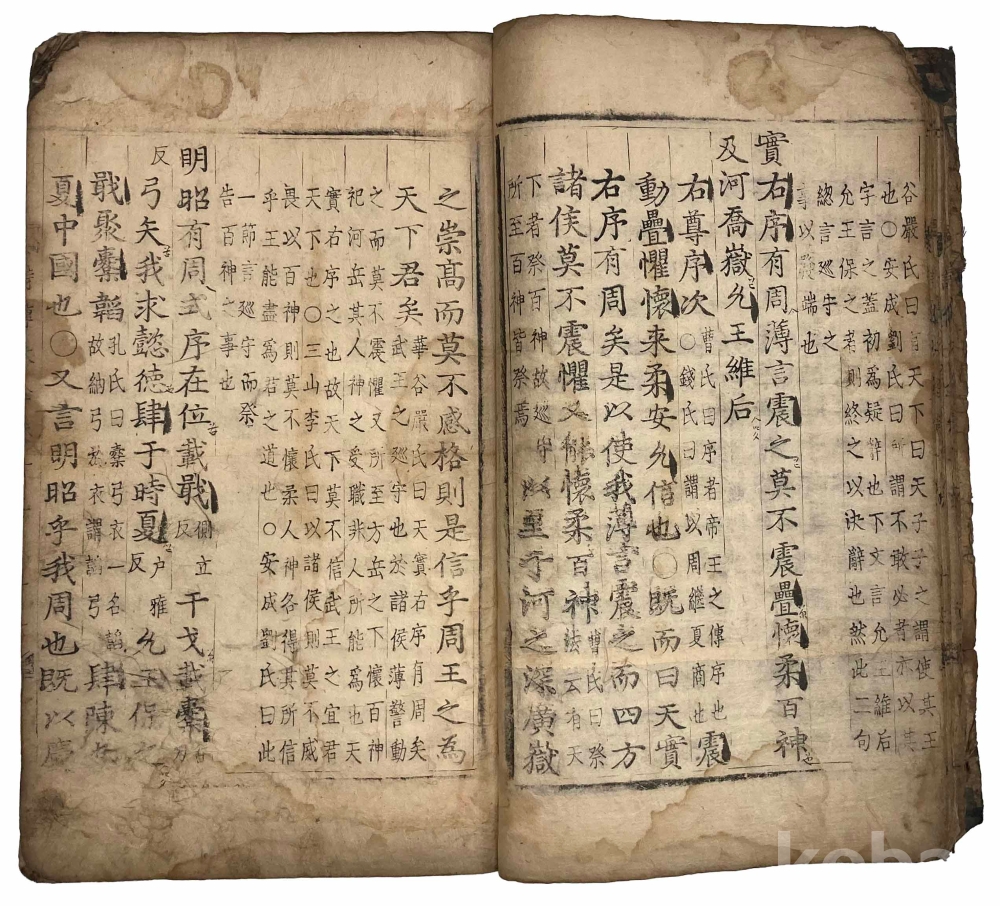 谷嚴氏曰言天下曰天子子之謂使其王
也〇安成劉氏曰所謂不敢必者亦以其
字言之蓋初為疑辭也下文言允王維后
允王保之者則終之以决辭也然此二句
總言巡守之
事以發端也
實右序有周薄言震之莫不震疊懷柔百神
及河喬嶽允王維后
右尊序次〇錢氏曰謂以周繼夏商也震
曹氏曰序者帝王之傳序也
動疊懼懷来柔安允信也〇既而曰天實
右序有周矣是以使我薄言震之而四方
諸侯莫不震懼又能懷柔百神
曹氏曰祭
法云有天
下者祭百神故巡守
所至百神皆祭焉
以至于河之深廣嶽
之崇高而莫不感格則是信乎周王之為
天下君矣
華谷嚴氏曰天實右序有周矣
武王之巡守也於諸侯薄警動
之而莫不震懼又所至方岳之下懷百神
祀河岳其人神之受職非人所能為也天
實右序之也故天下莫不信武王之宜君
天下也〇三山李氏曰以諸侯則莫不威
畏以百神則莫不懷柔人神各得其所信
乎王能盡為君之道也〇安成劉氏曰此
一節言巡守而祭
告百神之事也
明昭有周式序在位載戢
側立
反
干戈載櫜
弓矢我求懿德肆于時夏
戶雅
反
允王保之
戢聚櫜韜
孔氏曰櫜弓衣一名韜
故納弓於衣謂韜弓
肆陳也
夏中國也〇又言明昭乎我周也既以慶